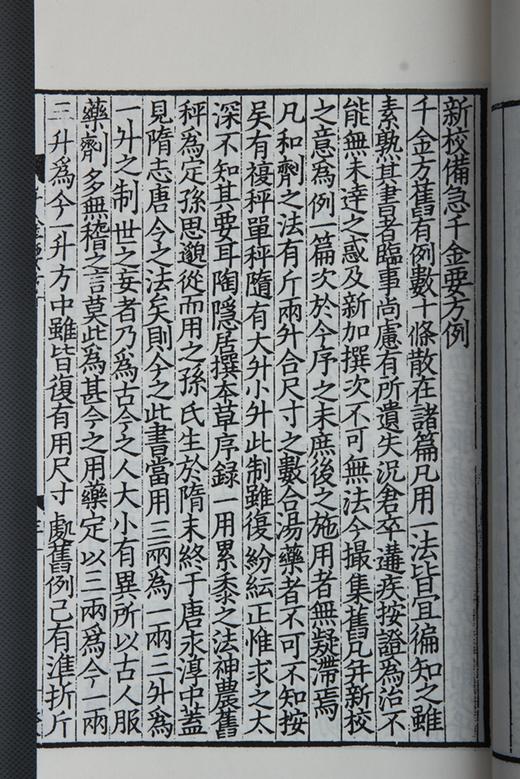 新校備急千金要方例
千金方舊有例數十條散在諸篇凡用一法皆宜徧知之雖
素熟其書者臨事尚慮有所遺失況倉卒遘疾按證為治不
能無未達之惑及新加撰次不可無法今撮集舊凡并新校
之意為例一篇次於今序之末庶後之施用者無疑滯焉
凡和劑之法有斤兩升合尺寸之數合湯藥者不可不知按
吳有複秤單秤隋有大升小升此制雖復紛紜正惟求之太
深不知其要耳陶隱居撰本草序録一用累黍之法神農舊
秤為定孫思邈從而用之孫氏生於隋末終于唐永淳中蓋
見隋志唐令之法矣則今之此書當用三兩為一兩三升為
一升之制世之妄者乃為古今之人大小有異所以古人服
藥劑多無稽之言莫此為甚今之用藥定以三兩為今一兩
三升為今一升方中雖皆復有用尺寸處舊例已有準折斤